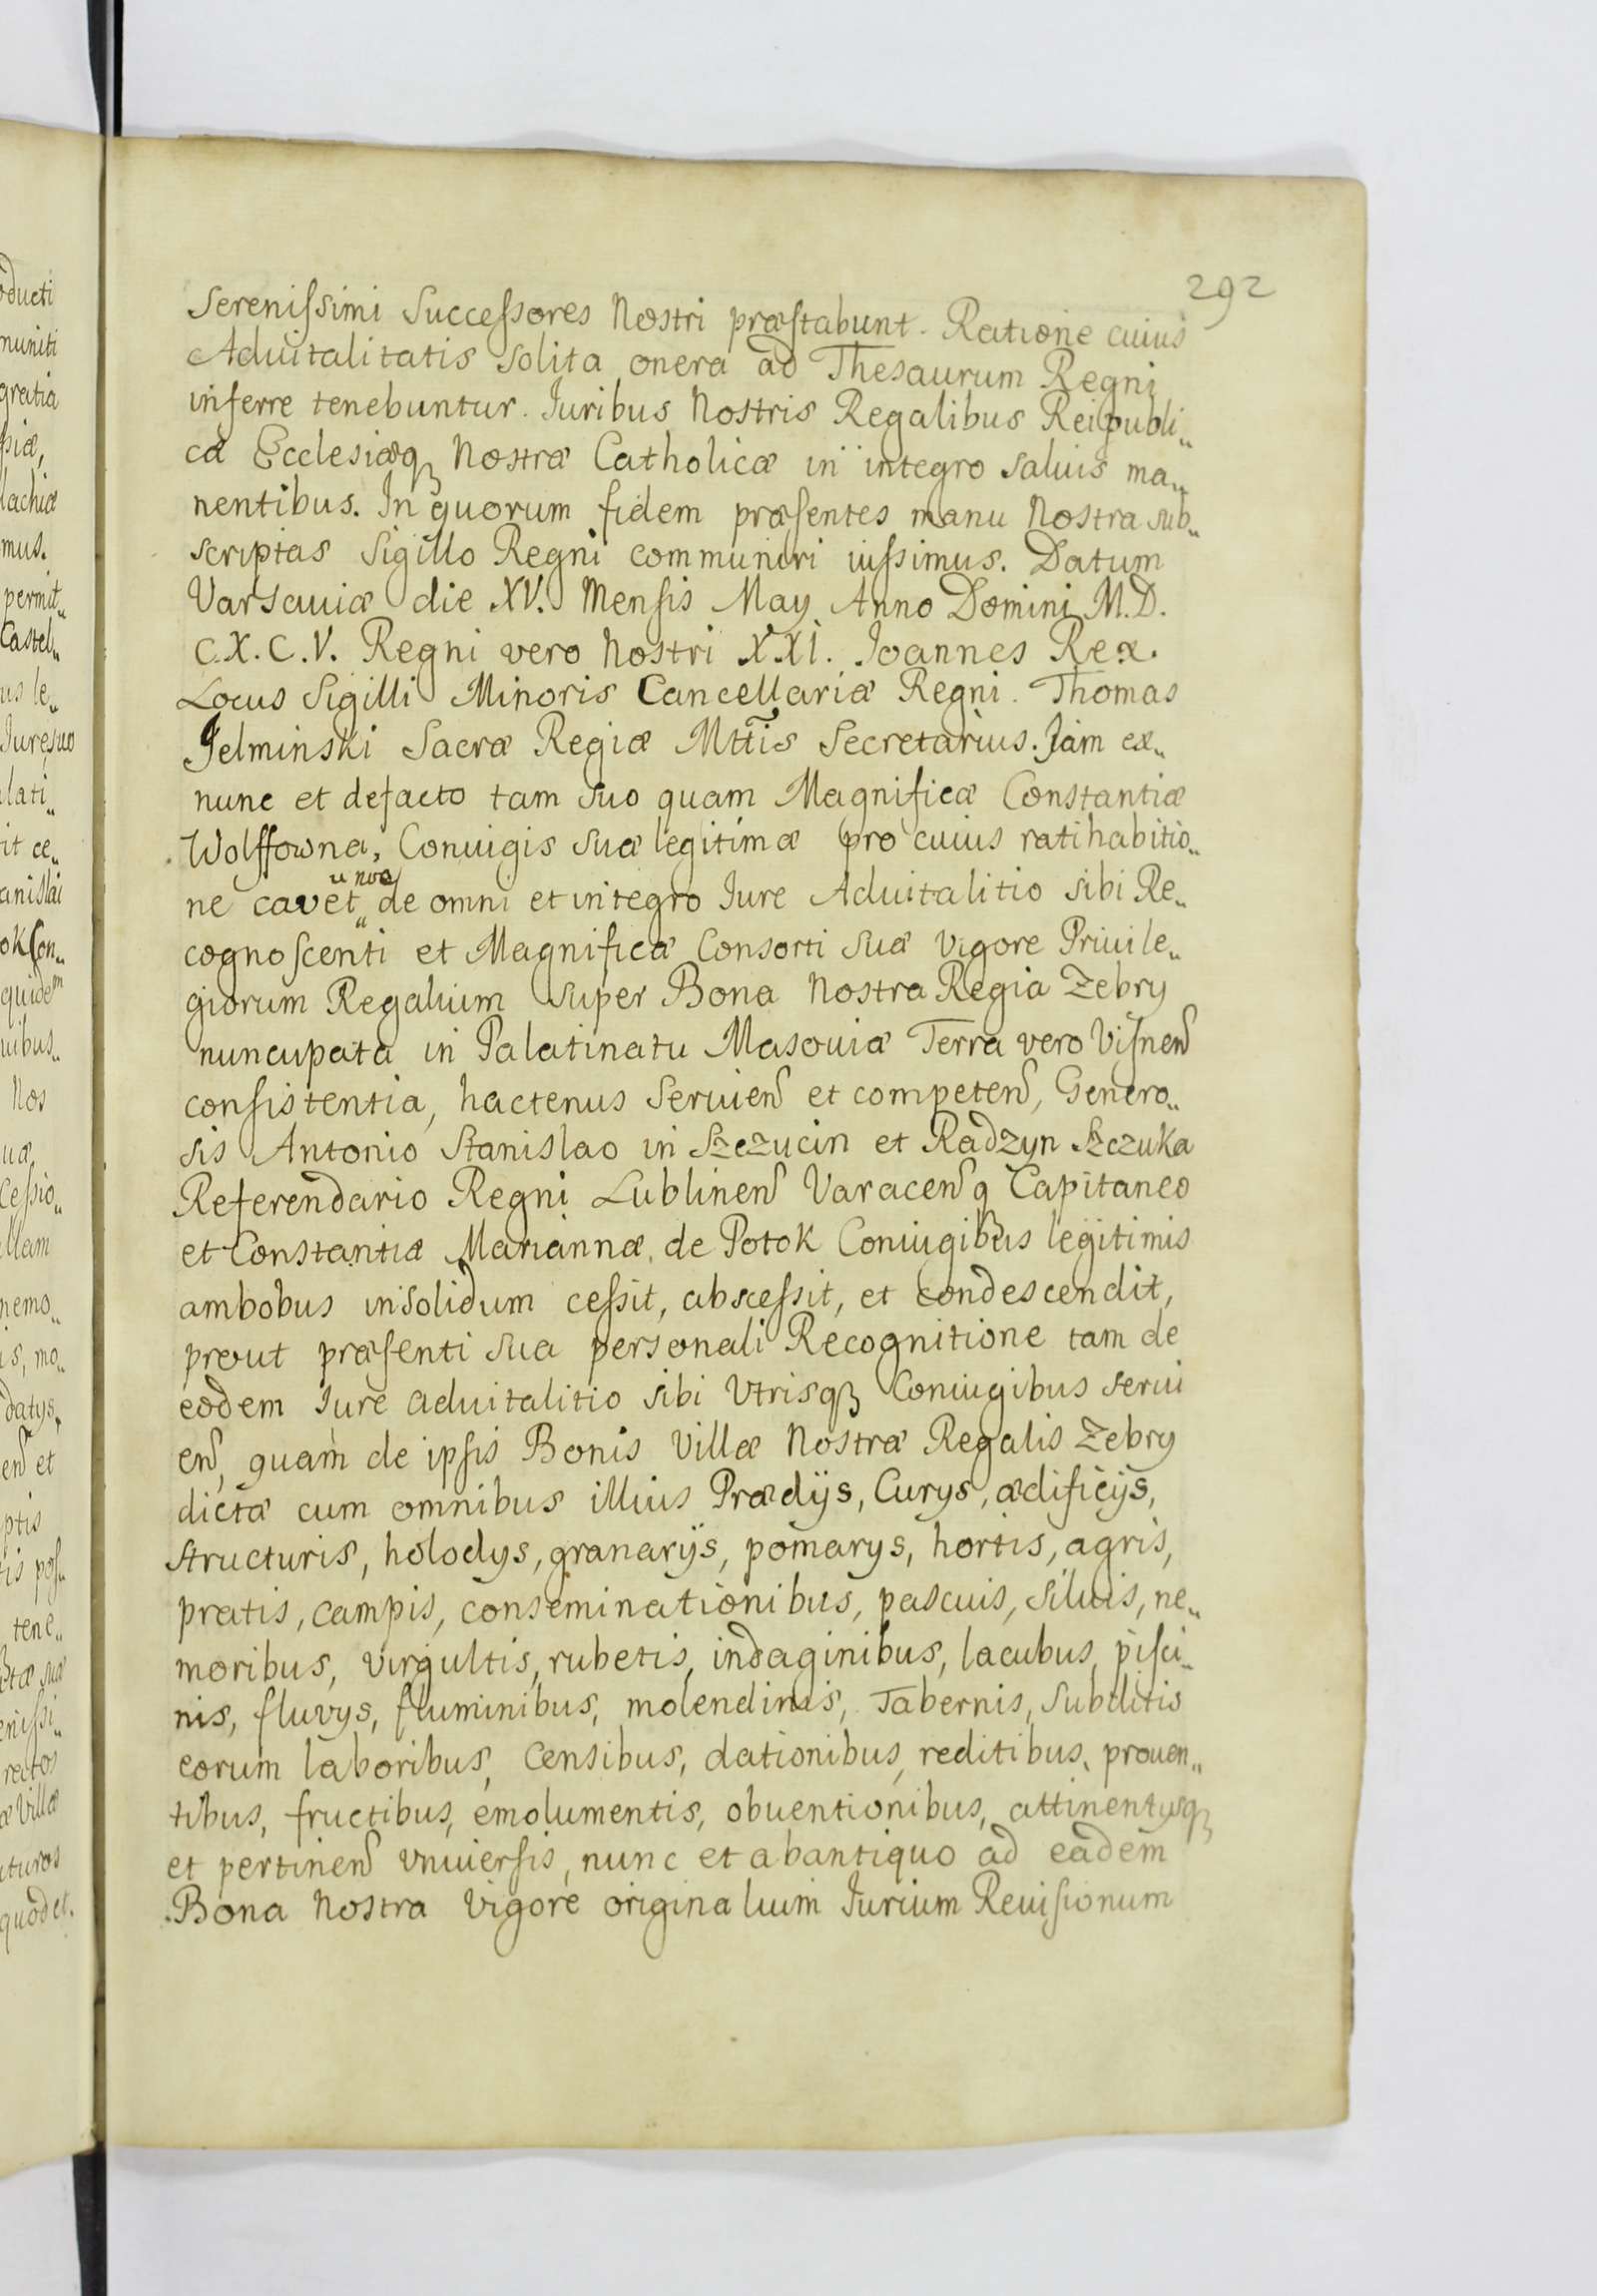 292
Serenissimi Successores Nostri præstabunt. Ratione cuius
Aduitalitatis solita onera ad Thesaurum Regni
inferre tenebuntur. Iuribus Nostris Regalibus Reipubli„
cæ Ecclesiæq́ꝫ Nostræ Catholicæ in integro saluis ma„
nentibus. In quorum fidem præsentes manu Nostra sub„
scriptas Sigillo Regni communiri iussimus. Datum
Varsauiæ die XV. Mensis May Anno Domini M.D.
C.X.C.V. Regni vero Nostri XXI. Ioannes Rex.
Locus Sigilli Minoris Cancellariæ Regni. Thomas
Jelminski Sacræ Regiæ Mttis Secretarius. Jam ex„
nunc et defacto tam suo quam Magnificæ Constantiæ
Wolffowna, Coniugis suæ legitimæ pro cuius ratihabitio„
ne cavet de omni et integro Iure Aduitalitio sibi Re„
cognoscenti et Magnificæ Consorti suæ vigore Priuile„
giorum Regalium super Bona Nostra Regia Zebry
nuncupata in Palatinatu Masouiæ Terra vero Visnen
consistentia, hactenus seruien et competen, Genero„
sis Antonio Stanislao in Szczucin et Radzyn Szczuka
Referendario Regni Lublinen Varacenqꝫ Capitaneo
et Constantiæ Mariannæ de Potok Coniugibus legitimis
ambobus insolidum cessit, abscessit, et condescendit,
prout præsenti sua personali Recognitione tam de
eodem Iure aduitalitio sibi Vtrisqꝫ Coniugibus serui
en, quam de ipsis Bonis Villæ Nostræ Regalis Zebry
dictæ cum omnibus illius Prædijs, Curys, ædificijs,
structuris, holodys, granarijs, pomarys, hortis, agris,
pratis, campis, conseminationibus, pascuis, siluis, ne„
moribus, virgultis, rubetis, indaginibus, lacubus, pisci„
nis, fluvys, fluminibus, molendinis, Tabernis, subditis
eorum laboribus, Censibus, dationibus, reditibus, prouen„
tibus, fructibus, emolumentis, obuentionibus, attinentysqꝫ
et pertinen vniuersis, nunc et abantiquo ad eadem
Bona Nostra vigore originalium Iurium Reuisionum